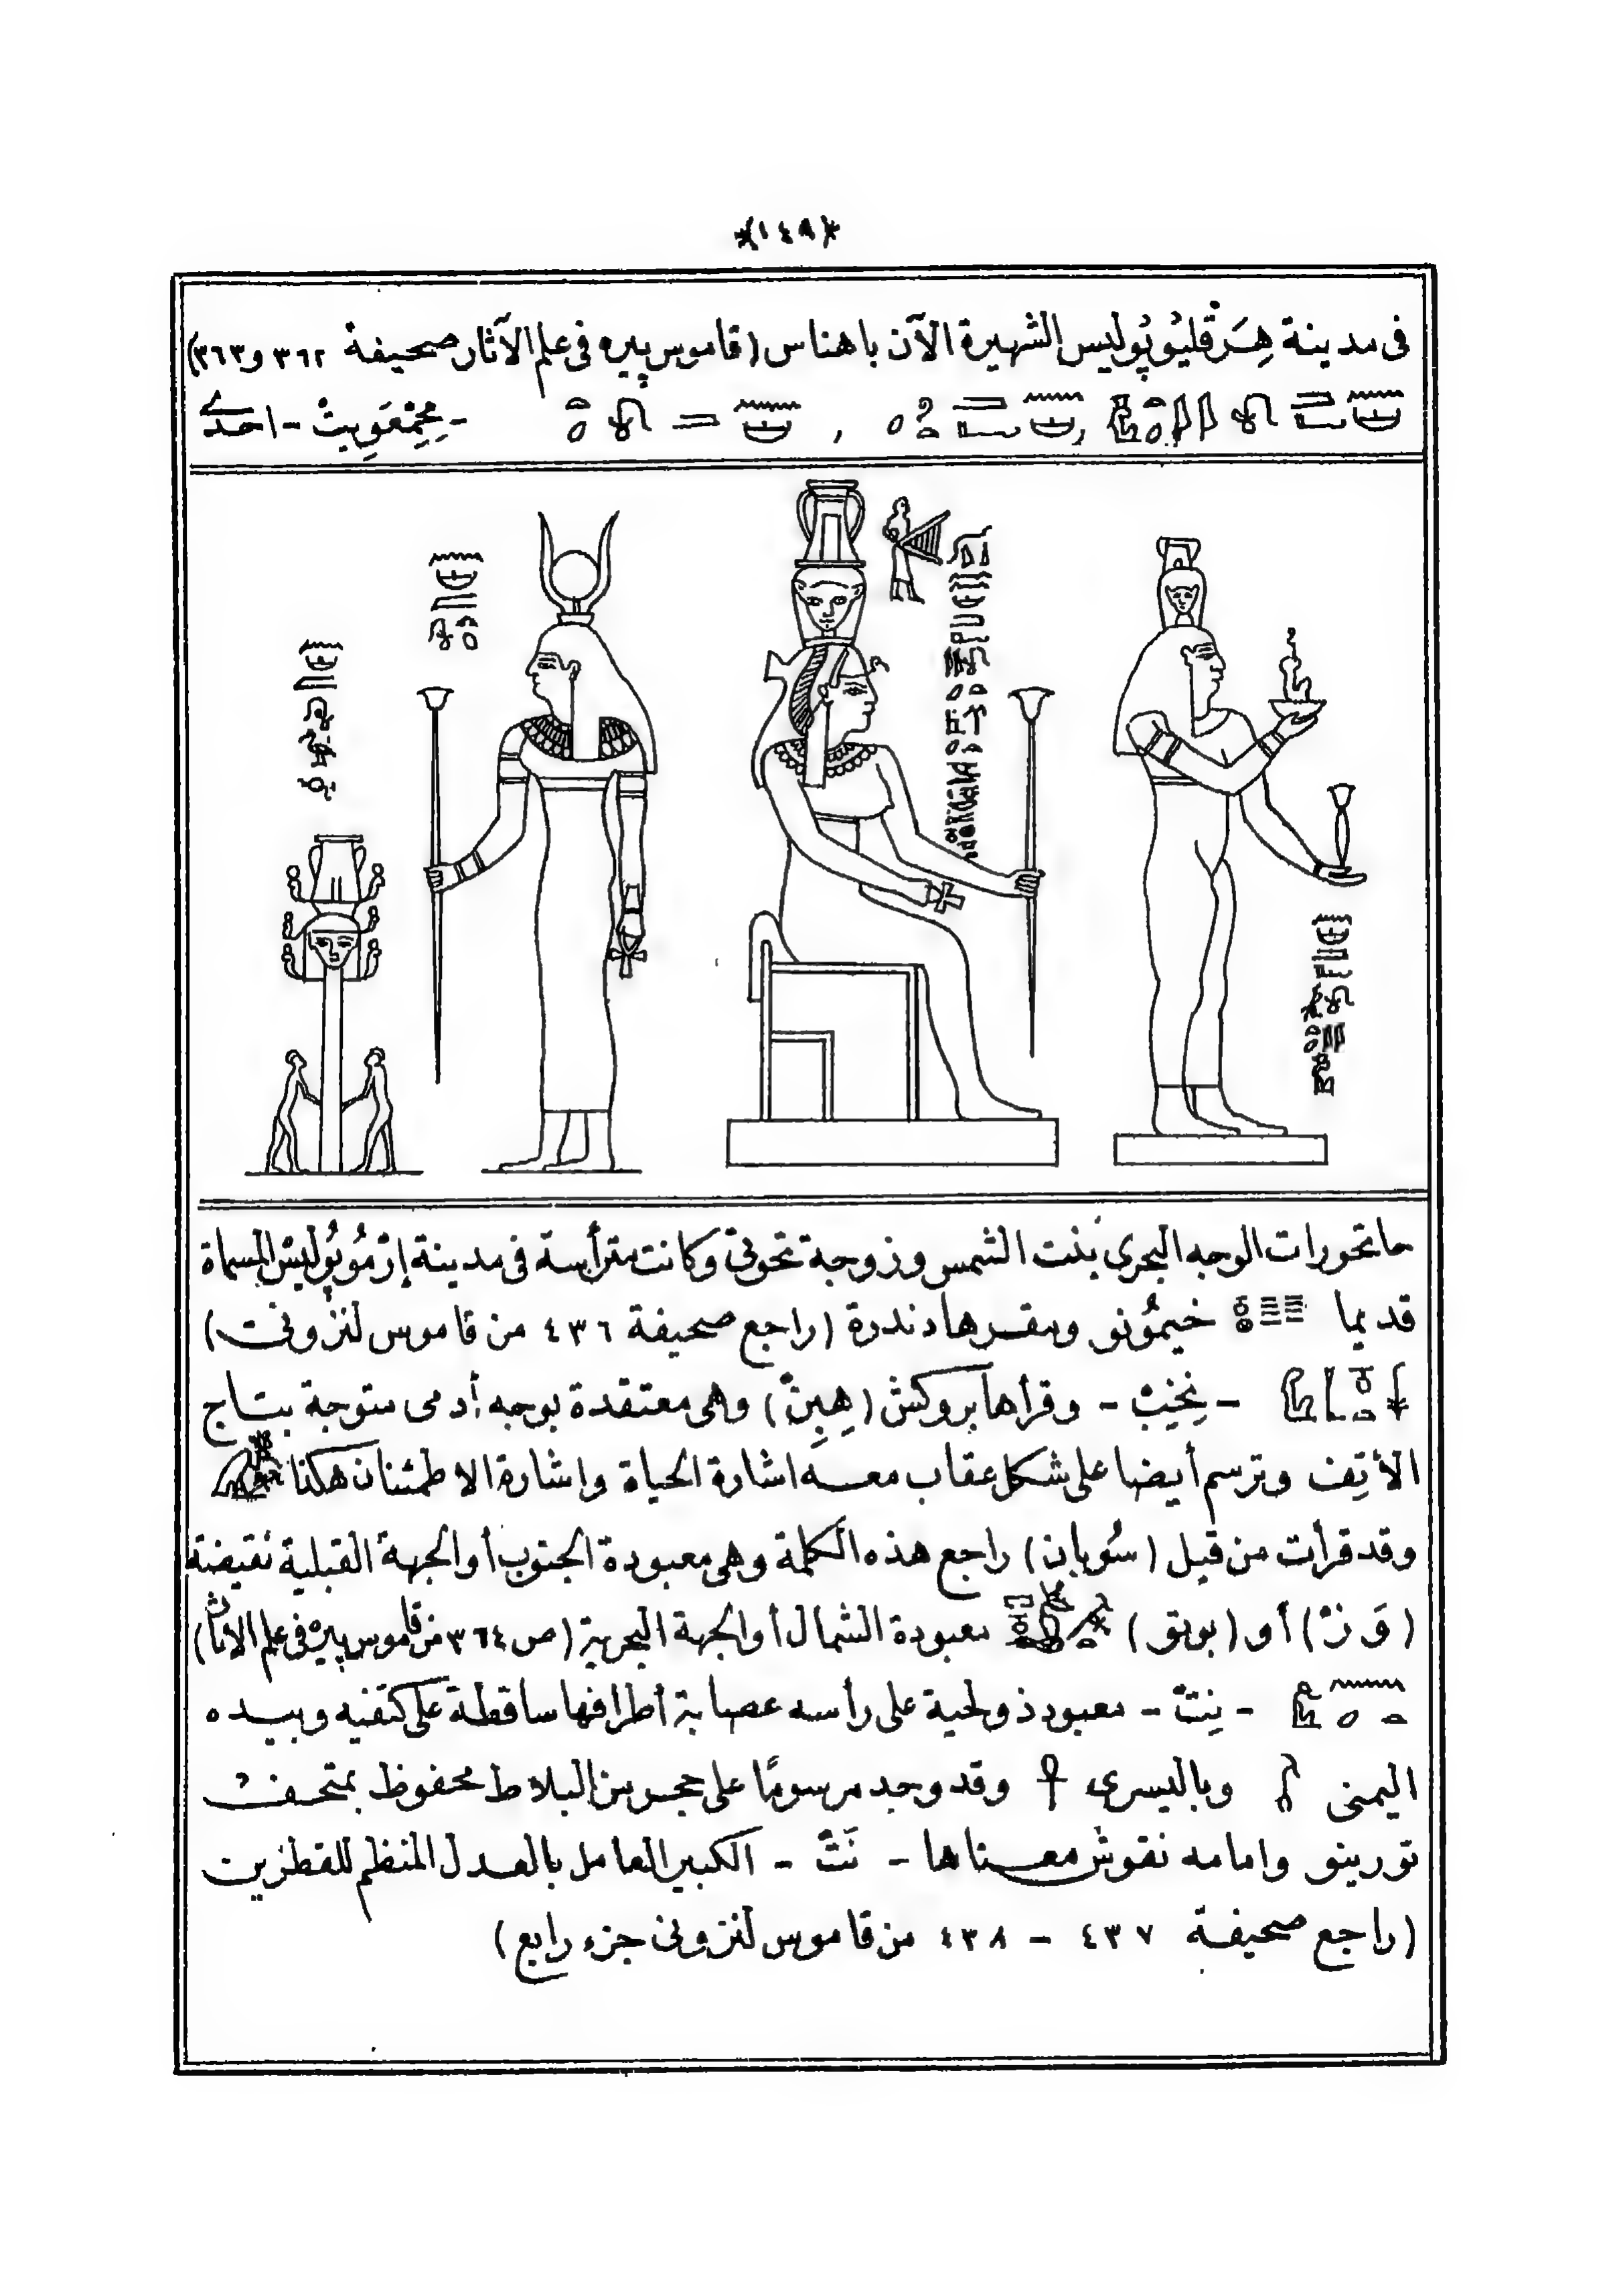 *(١٤٩)*
فى مدينة هِرَقْليُوپُوليس الشهيرة الآن باهناس (قاموس پيره فى علم الآثار صحيفة ٣٦٢ و٣٦٣)
- احدى
حاتحورات الوجه البحرى بنت الشمس وزوجة تحوتى وكانت مترأسة فى مدينة إرْمُوپُوليسْ المسماة
قديما خيمُونو ومقرها دندرة (راجع صحيفة ٤٣٦ من قاموس لنزونى)
- نِخِيْبْ - وقرأها بروكش (هِبِنْ) وهى معتقدة بوجه أدمى متوجة بتاج
الأتِف وترسم أيضا على شكل عقاب معه اشارة الحياة واشارة الاطمئنان هكذا
وقد قرأت من قبل (سُوبان) راجع هذه الكلمة وهى معبودة الجنوب أو الجهة القبلية نقيضة
(وَزْ) أو (بوتو) معبودة الشمال أو الجهة البحرية (ص ٣٦٤ من قاموس پيره فى علم الاثار)
- نِتْ - معبود ذو لحية على رأسه عصابة أطرافها ساقطة على كتفيه وبيده
اليمنى وباليسرى وقد وجد مرسومًا على حجر من البلاط محفوظ بمتحف
تورينو وامامه نقوش معناها - نَتْ - الكبير العامل بالعدل المنظم للقطرين
(راجع صحيفة ٤٣٧ - ٤٣٨ من قاموس لنزونى جزء رابع)